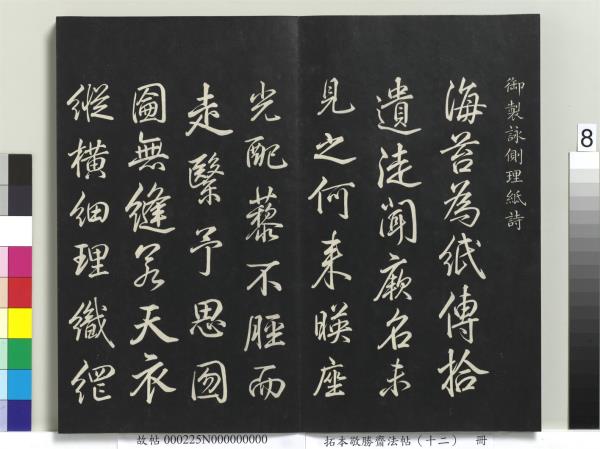 御製詠側理紙詩
海苔為紙傳拾
遺徒聞厥名未
見之何來映座
光配藜不脛而
走繄予思囫
圇無縫若天衣
縱橫細理織網
8
故帖 000225N000000000
拓本敬勝齋法帖(十二) 冊